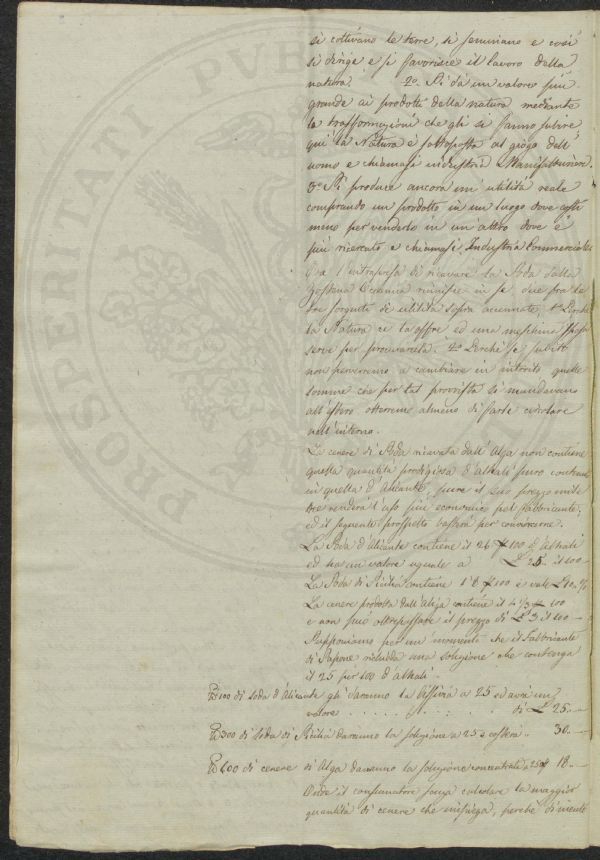 si coltivano le terre, si seminano e così
si dirige e si favorisce il lavoro della
natura. 2.° Si dà un valore più
grande ai prodotti della natura mediante
le trasformazioni che gli si fanno subire
quì la Natura è sottoposta al giogo dell'
uomo e chiamasi industria Manifatturiera.
3.° Si produce ancora un' utilità reale
comprando un prodotto in un luogo dove costi
meno per venderlo in un altro dove è
più ricercato e chiamasi Industria Commerciale
Ora l'intrapresa di ricavare la Soda dalla
Zostera Oceanica riunisce in se due fra le
tre sorgenti di utilità sopra accennate, 1.° Perchè
la Natura ce la offre ed una meschina spesa
serve per procurarcela. 2.° Perchè se subito
non perverremo a cambiare in introito quelle
somme che per tal provvista si mandavano
all'estero otterremo almeno di farle circolare
nell'interno.
La cenere di Soda ricavata dall'Alga non contiene
quella quantità prodigiosa d'alkali puro contenuta
in quella d'Alicante, pure il suo prezzo mite
ne renderà l'uso più economico pel fabbricante,
ed il seguente prospetto basterà per convincerne.
La Soda d'Alicante contiene il 26 p 100 d'Alkali
ed ha un valore uguale a £ 25. il 100
La Soda di Sicilia contiene l'8 p 100 e vale £ 10. %
La cenere prodotta dall'Alga contiene il 4 1/3 p 100
e non può oltrepassare il prezzo di £ 3 il 100
Supponiamo per un momento che il Fabbricante
di Sapone richieda una soluzione che contenga
il 25 per 100 d'alkali.
100 di soda d'Alicante gli daranno la lissivia a 25 ed avrà un
valore . . . . . . . . . di £ 25. —
300 di soda di Sicilia daranno la soluzione a 25 e costerà . . 30. —
600 di cenere di Alga daranno la soluzione concentrata a 25 18. —
Onde il consumatore senza calcolare la maggior
quantità di cenere che impiega, perchè di niente